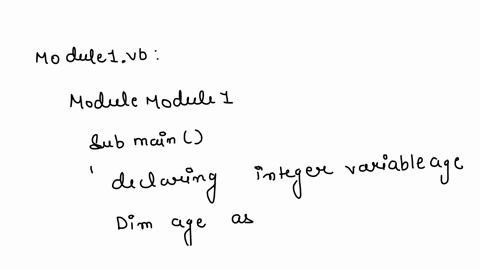 Module1.vb:
Module Module 1
Sub main()
' declaring integer variable age
Dim age as